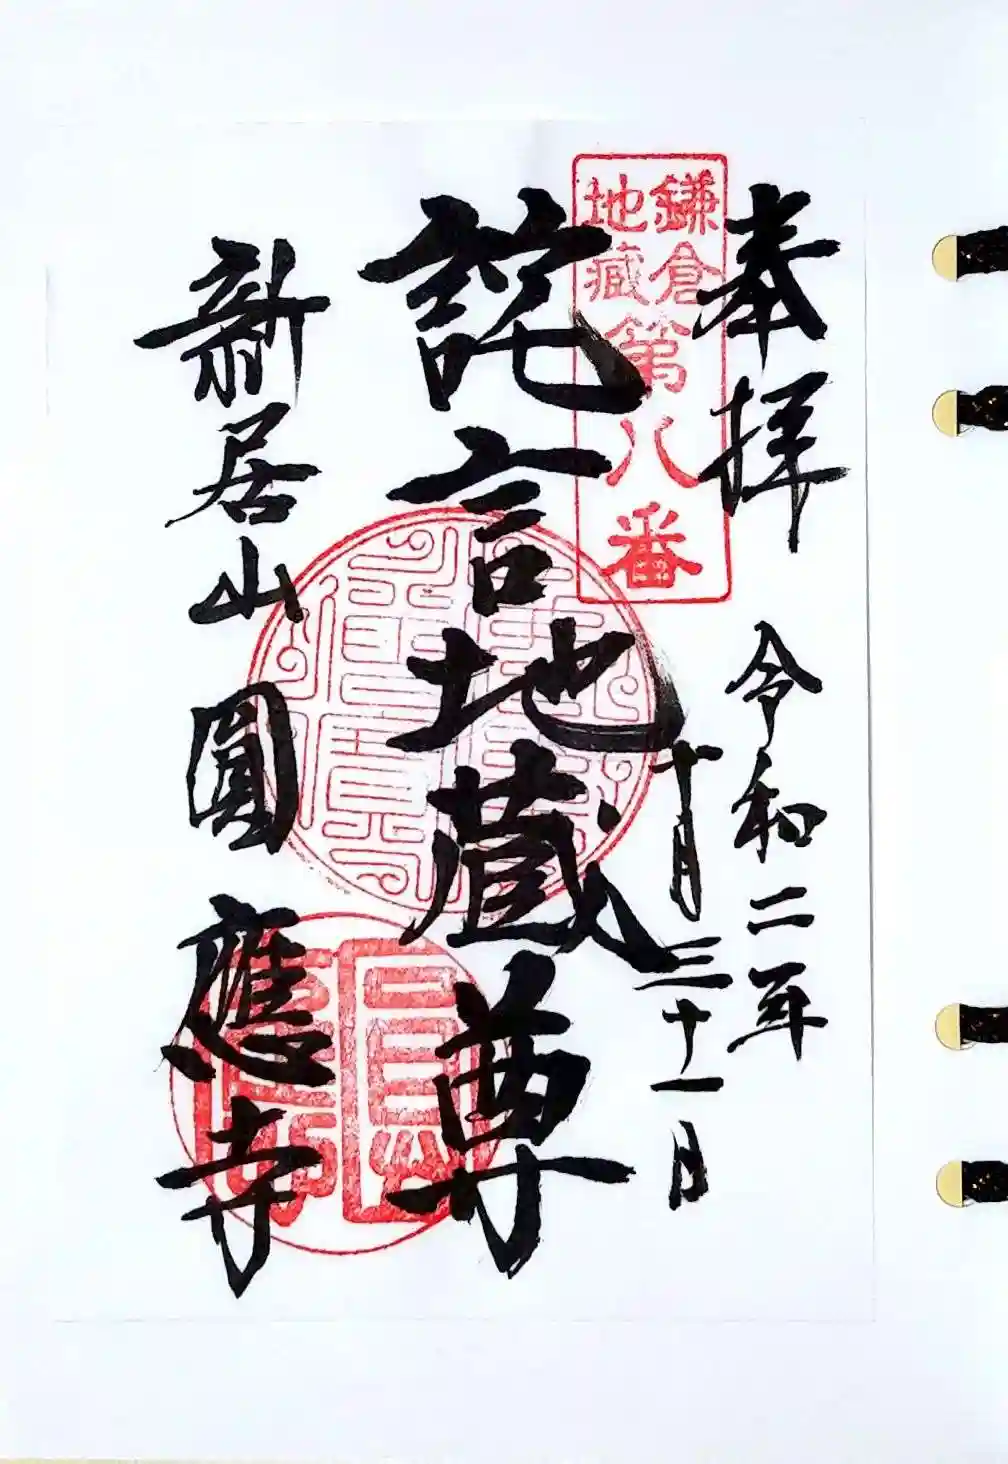 奉拝
令和二年
十月三十一日
鎌倉
地蔵
第八番
詫言地蔵尊
新居山 圓應寺